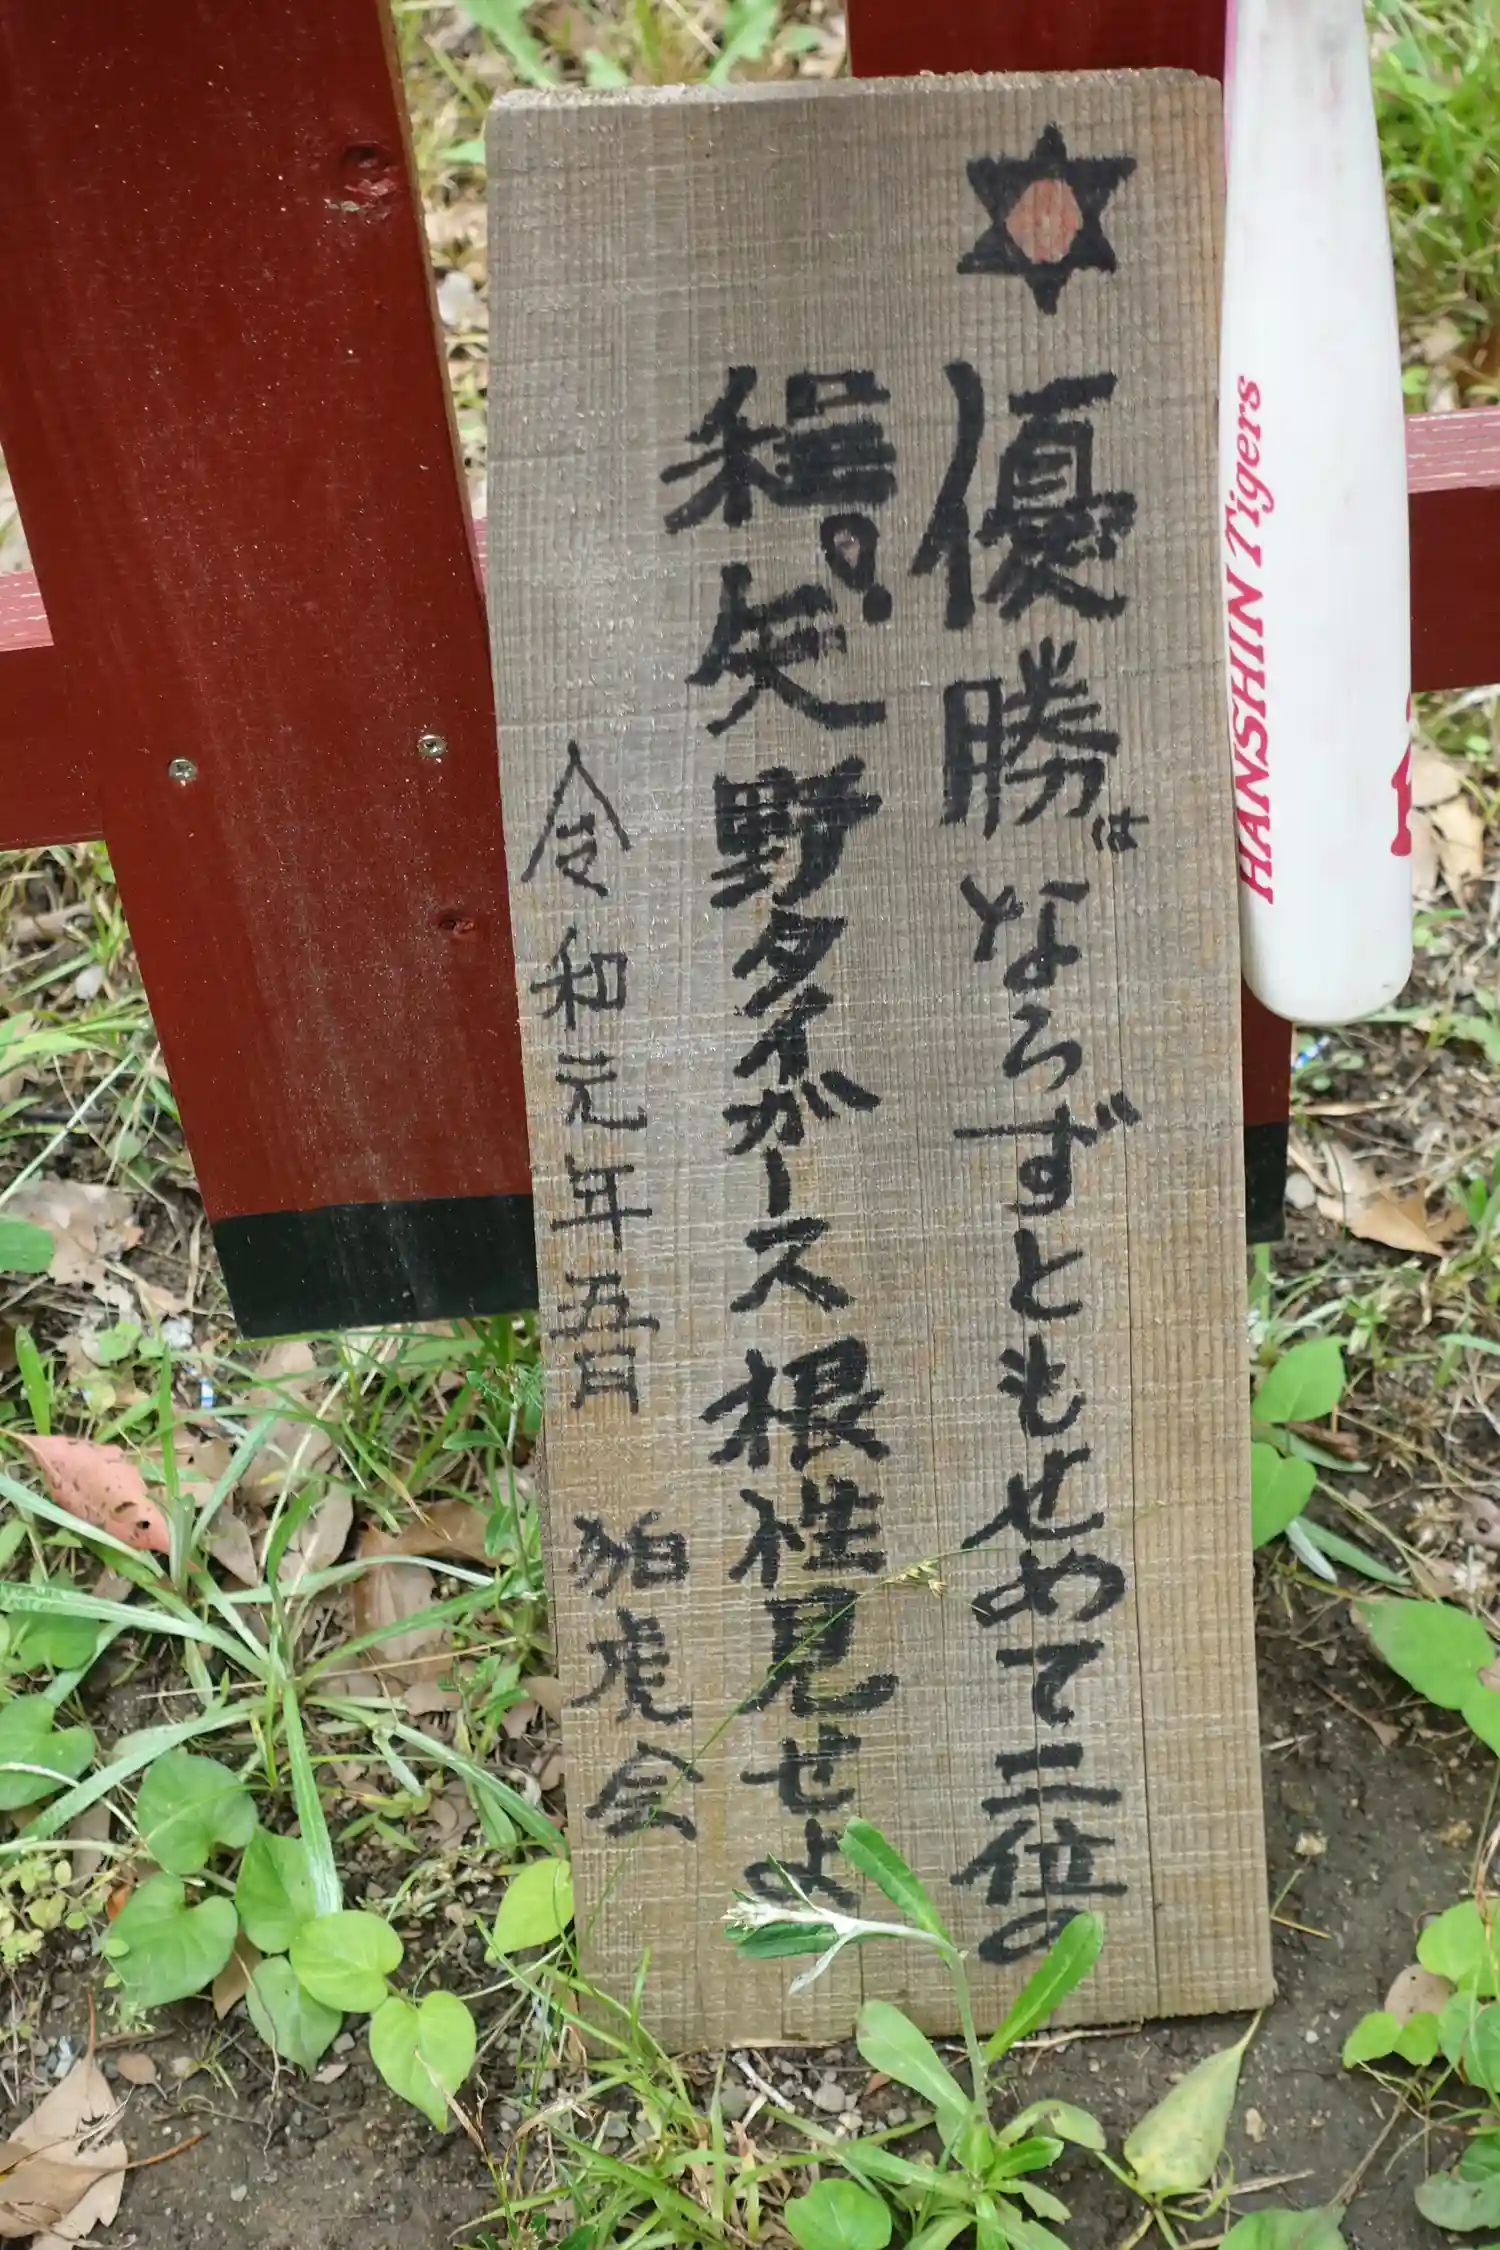 優勝はならずともせめて二位の
程！矢野タイガース根性見せよ
令和元年五月 狛虎会
HANSHIN Tigers